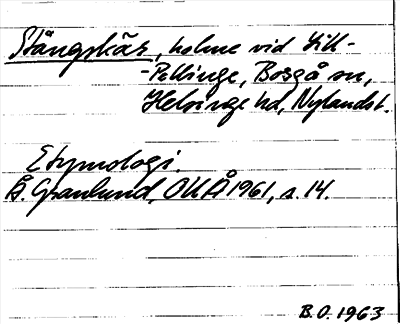 Stångskär, holme vid Lill-
-Pellinge, Borgå sn,
Helsinge hd, Nylandst.
Etymologi.
Å. Granlund, OUÅ 1961, s. 14.
B.O. 1963